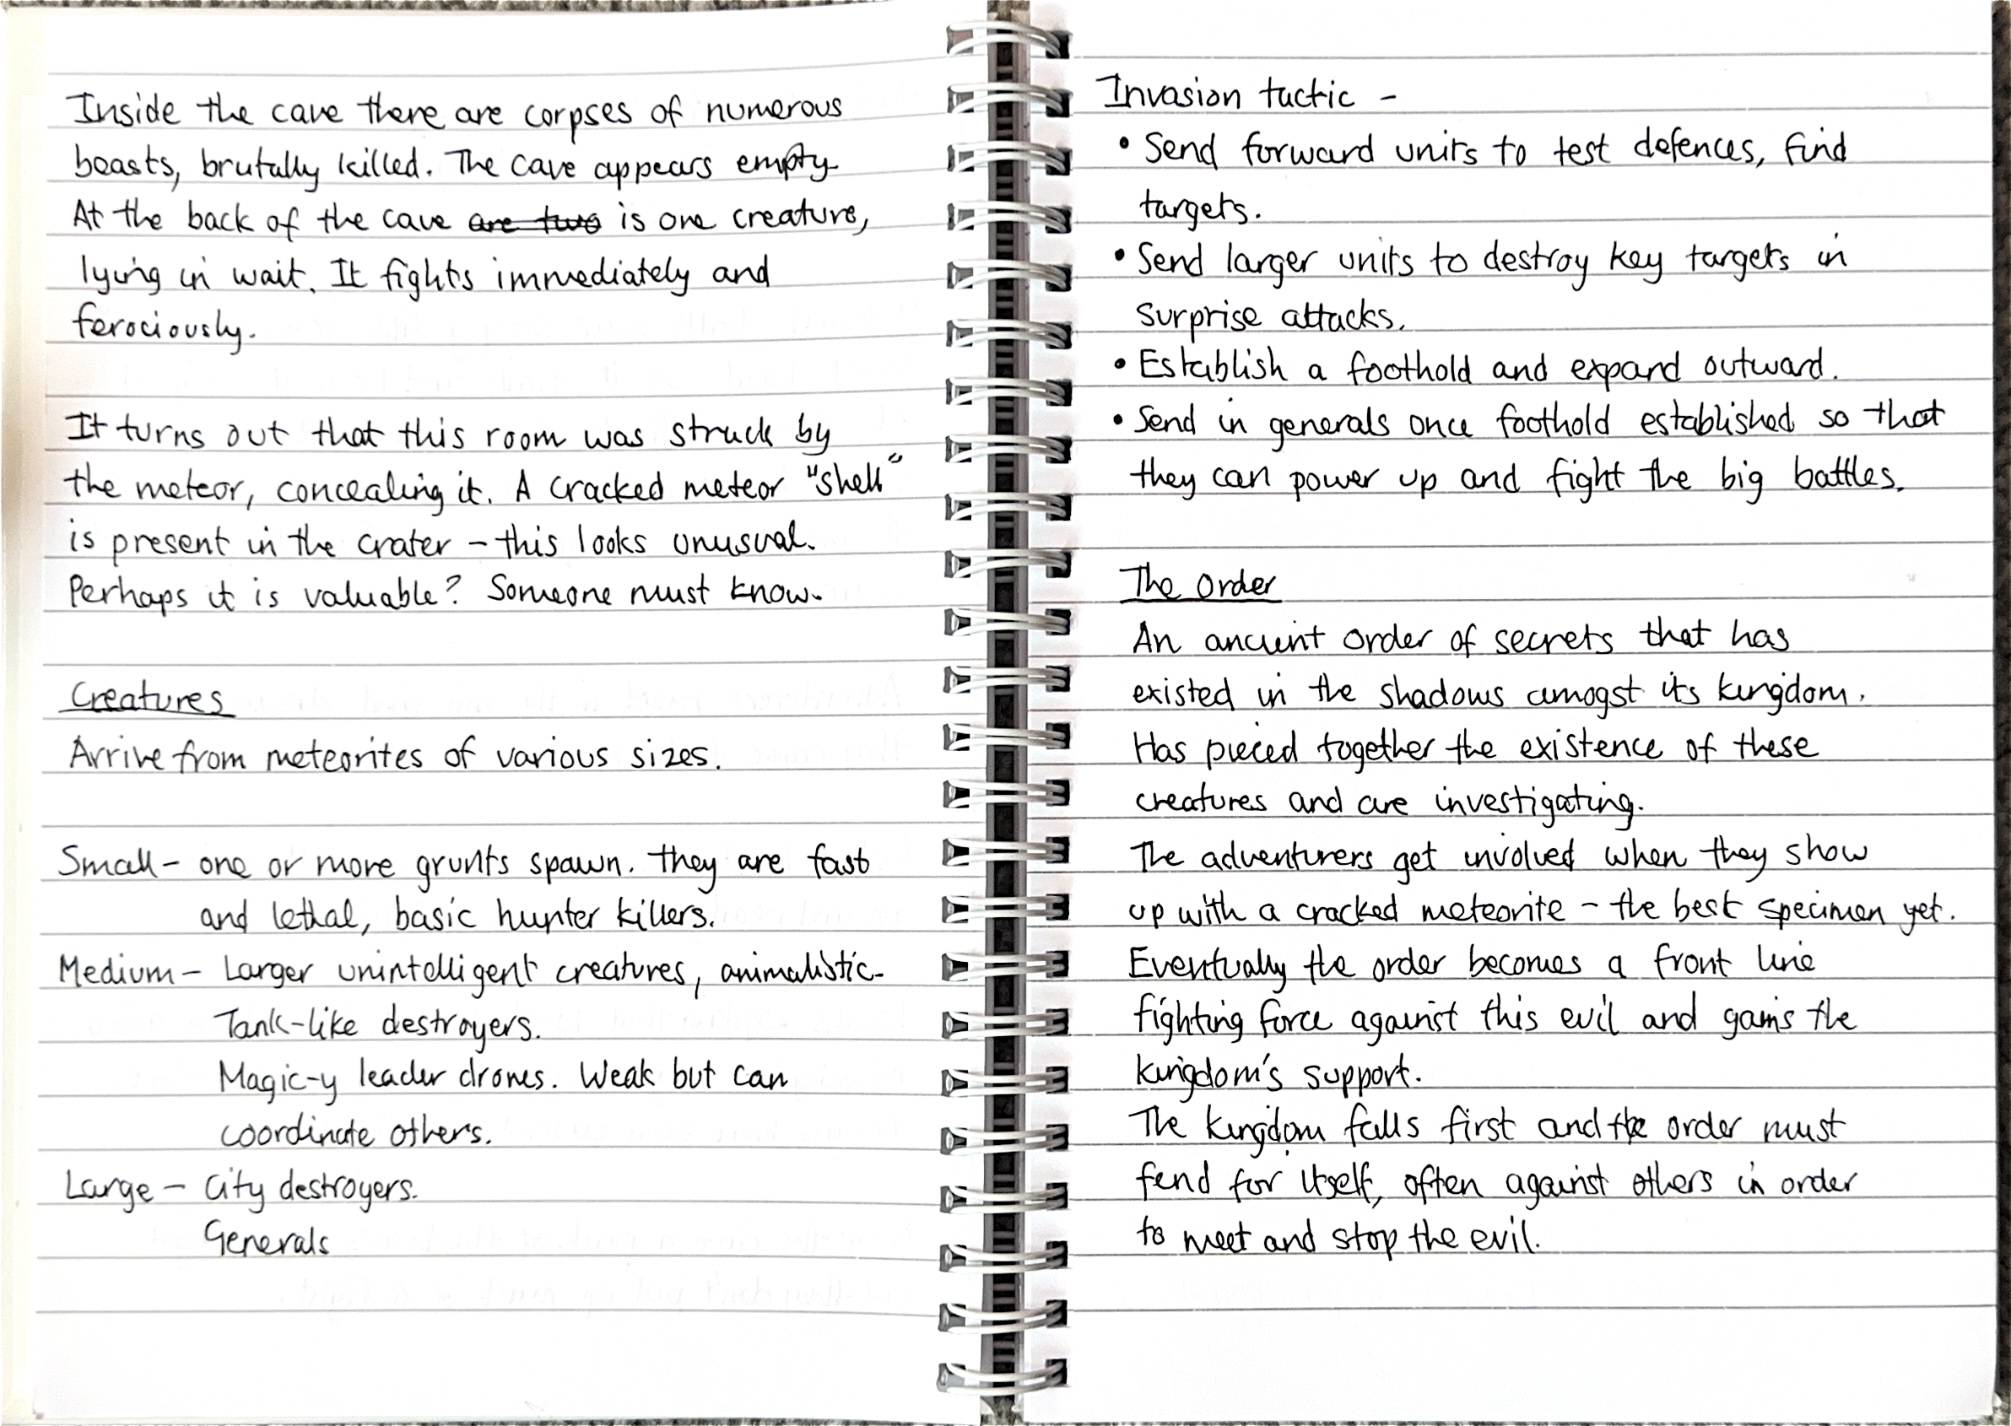 Inside the cave there are corpses of numerous
beasts, brutally killed. The cave appears empty.
At the back of the cave are two is one creature,
lying in wait. It fights immediately and
ferociously.
It turns out that this room was struck by
the meteor, concealing it. A cracked meteor "shell"
is present in the crater - this looks unusual.
Perhaps it is valuable? Someone must know.
Creatures
Arrive from meteorites of various sizes.
Small - one or more grunts spawn. They are fast
and lethal, basic hunter killers.
Medium - Larger unintelligent creatures, animalistic.
Tank-like destroyers.
Magic-y leader drones. Weak but can
coordinate others.
Large - City destroyers.
Generals
Invasion tactic -
• Send forward units to test defences, find
targets.
• Send larger units to destroy key targets in
surprise attacks.
• Establish a foothold and expand outward.
• Send in generals once foothold established so that
they can power up and fight the big battles.
The Order
An ancient order of secrets that has
existed in the shadows amogst its kingdom.
Has pieced together the existence of these
creatures and are investigating.
The adventurers get involved when they show
up with a cracked meteorite - the best specimen yet.
Eventually the order becomes a front line
fighting force against this evil and gains the
kingdom's support.
The kingdom falls first and the order must
fend for itself, often against others in order
to meet and stop the evil.